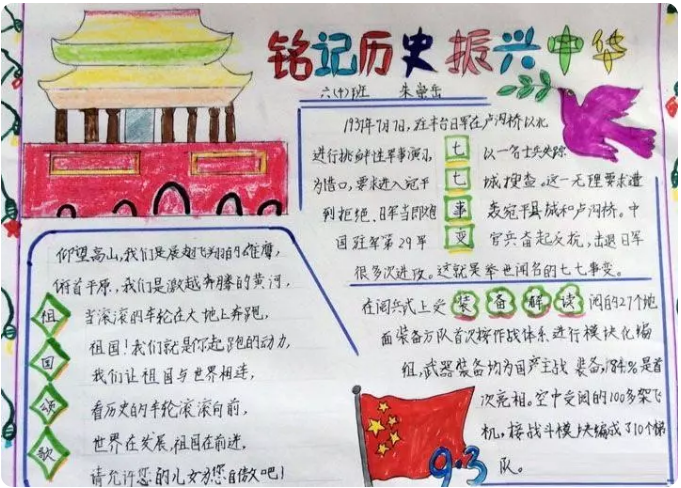 铭记历史 振兴中华
六(十)班 朱
1937年7月7日,驻丰台日军在卢沟桥以北
进行挑衅性军事演习, 七 以一名士兵失踪
为借口,要求进入宛平 七 城搜查。这一无理要求遭
到拒绝。日军当即炮 事 轰宛平县城和卢沟桥。中
国驻军第29军 变 官兵奋起反抗,击退日军
很多次进攻。这就是举世闻名的七七事变。
在阅兵式上受 装备解读 阅的27个地
面装备方队首次按作战体系进行模块化编
组,武器装备均为国产主战 装备,84%是首
次亮相。空中受阅的100多架飞
机,按战斗模块编成了10个梯
队。
9·3
祖国颂歌
仰望高山,我们是展翅飞翔的雄鹰,
俯首平原,我们是激越奔腾的黄河,
当滚滚的车轮在大地上奔跑,
祖国!我们就是你起跑的动力,
我们让祖国与世界相连,
看历史的车轮滚滚向前,
世界在发展,祖国在前进,
请允许您的儿女为您自傲吧!